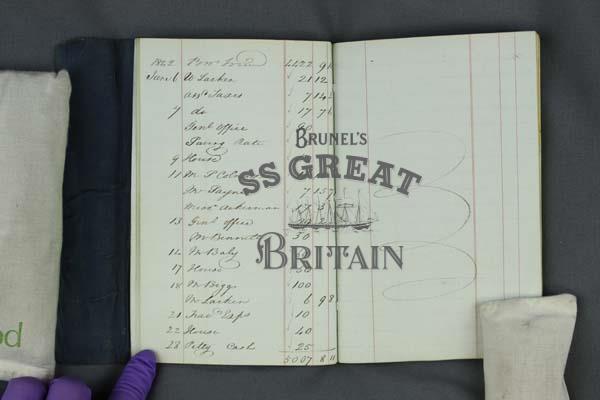 1842 Bro. Forwd 4422 9
Jany 6 W Larkin 21 12
assd Taxes 7 14
7 do 17 7
Genl office
Paving Rate
9 House
11 M
Mr Payne 7 15 7
Miss Ackerman
13 Genl office
Mr Bennett 30
14 Mr Baly
17 House
18 Mr Biggs 100
Mr Larkin 6 9 8
21 Travg Exps 10
22 House 40
28 Petty Cash 25
5007 8 11
BRUNEL'S
SS GREAT
BRITAIN
od